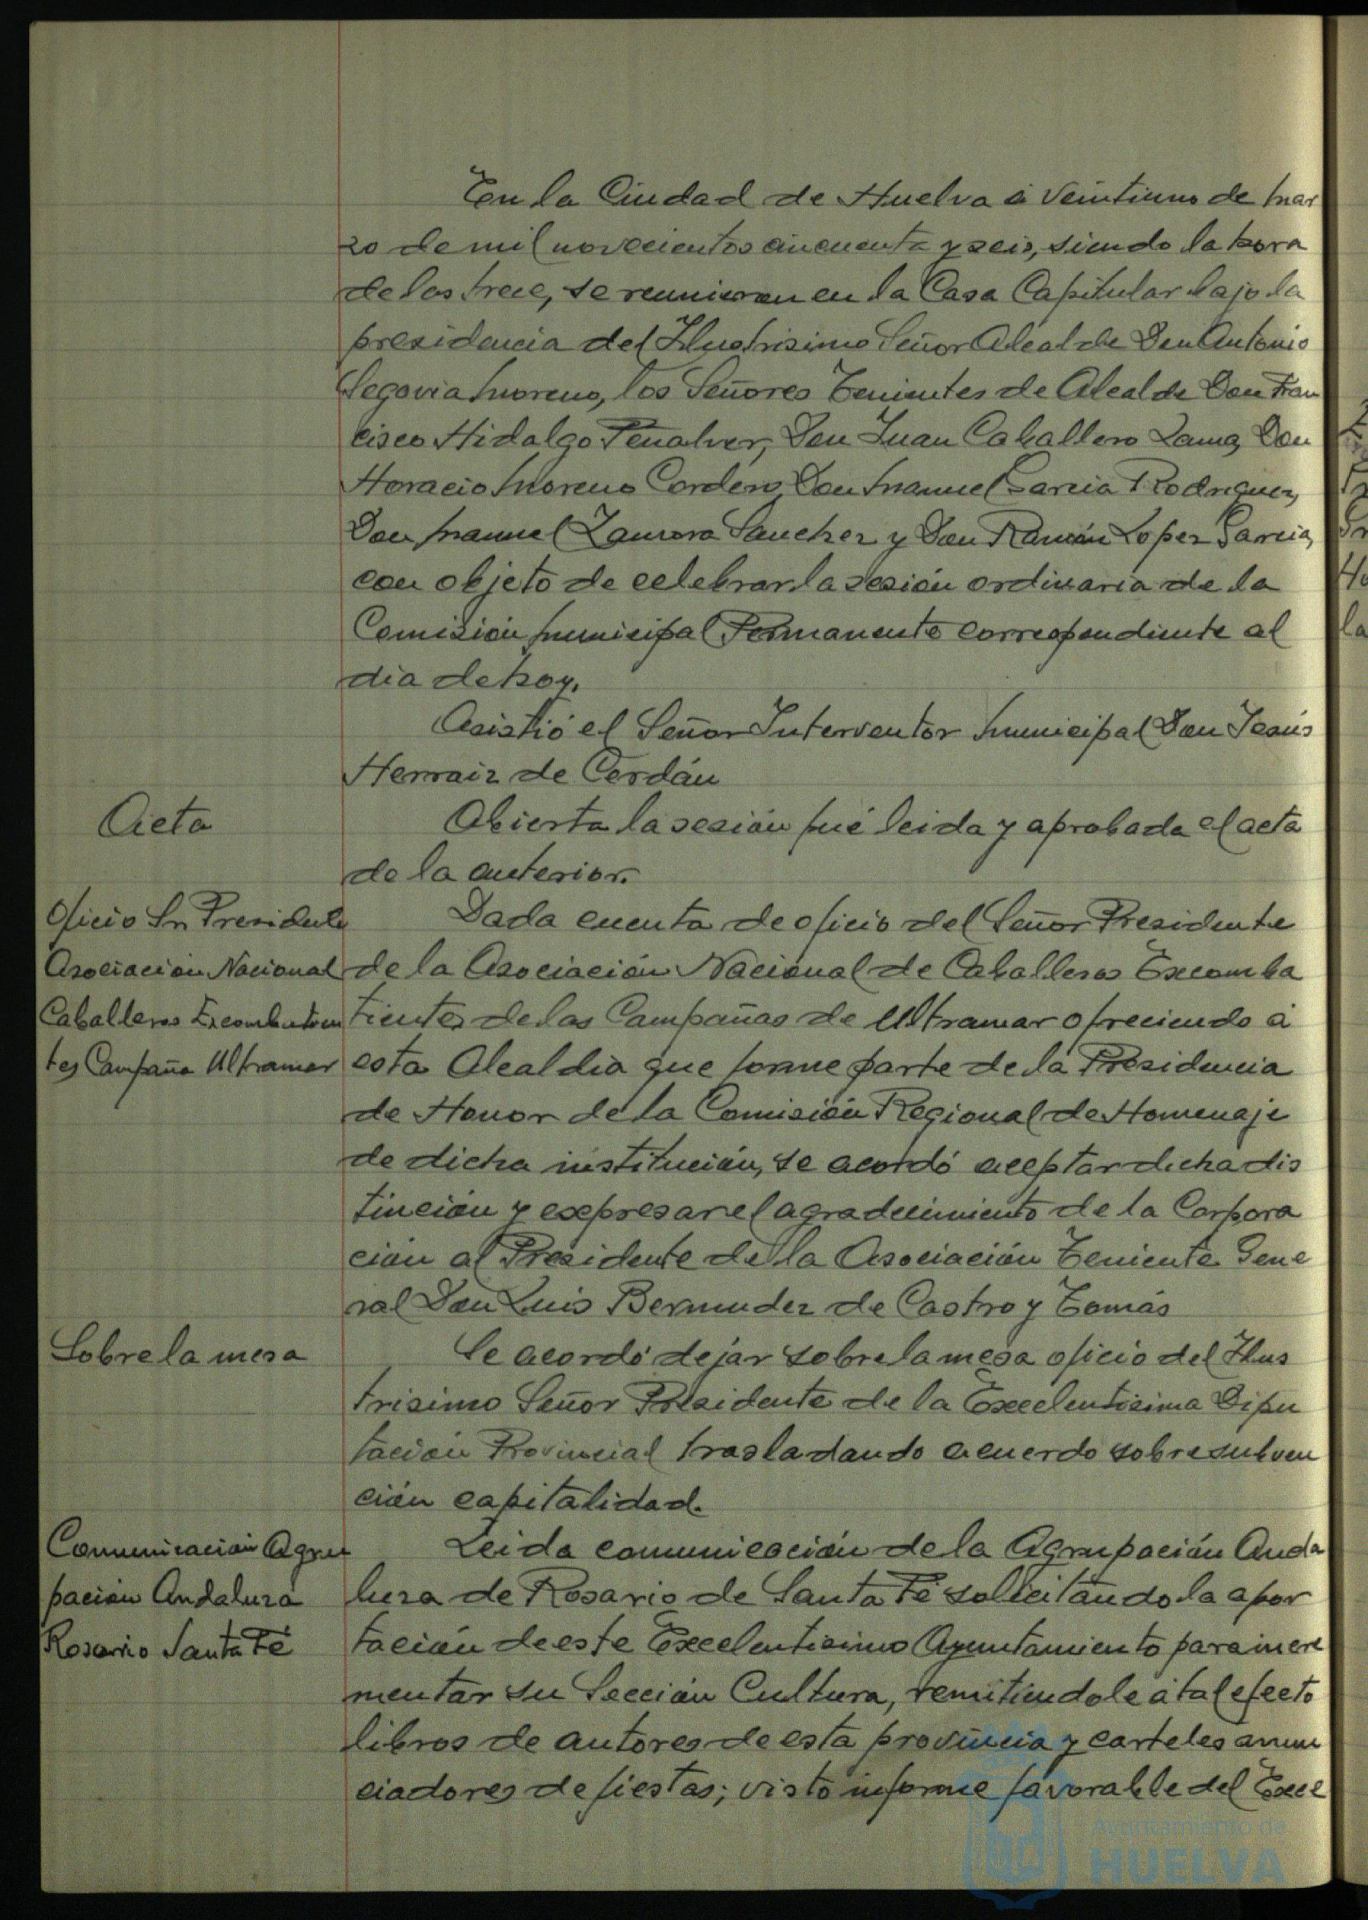 En la Ciudad de Huelva á veintiuno de mar
zo de mil novecientos cincuenta y seis, siendo la hora
de las trece, se reunieron en la Casa Capitular bajo la
presidencia del Ilustrisimo Señor Alcalde Don Antonio
Segovia Moreno, los Señores Tenientes de Alcalde Don Fran
cisco Hidalgo Peñalver, Don Juan Caballero Lama, Don
Horacio Moreno Cordero, Don Manuel Garcia Rodriguez,
Don Manuel Zamora Sanchez y Don Ramón Lopez Garcia,
con objeto de celebrar la sesión ordinaria de la
Comisión Municipal Permanente correspondiente al
dia de hoy.
Asistió el Señor Interventor Municipal Don Jesús
Herraiz de Cerdán
Acta
Abierta la sesión fué leida y aprobada el acta
de la anterior.
Oficio Sr. Presidente
Asociación Nacional
Caballeros Excombatien
tes Campaña Ultramar
Dada cuenta de oficio del Señor Presidente
de la Asociación Nacional de Caballeros Excomba
tientes de las Campañas de Ultramar ofreciendo á
esta Alcaldia que forme parte de la Presidencia
de Honor de la Comisión Regional de Homenaje
de dicha institución, se acordó aceptar dicha dis
tinción y expresar el agradecimiento de la Corpora
ción al Presidente de la Asociación Teniente Gene
ral Don Luis Bermudez de Castro y Tomás
Sobre la mesa
Se acordó dejar sobre la mesa oficio del Ilus
trisimo Señor Presidente de la Excelentisima Dipu
tación Provincial trasladando acuerdo sobre subven
ción capitalidad.
Comunicación Agru
pación Andaluza
Rosario Santa Fé
Leida comunicación de la Agrupación Anda
luza de Rosario de Santa Fé solicitando la apor
tación de este Excelentisimo Ayuntamiento para incre
mentar su Sección Cultura, remitiendole á tal efecto
libros de autores de esta provincia y carteles anun
ciadores de fiestas; visto informe favorable del Exce
Ayuntamiento de
HUELVA